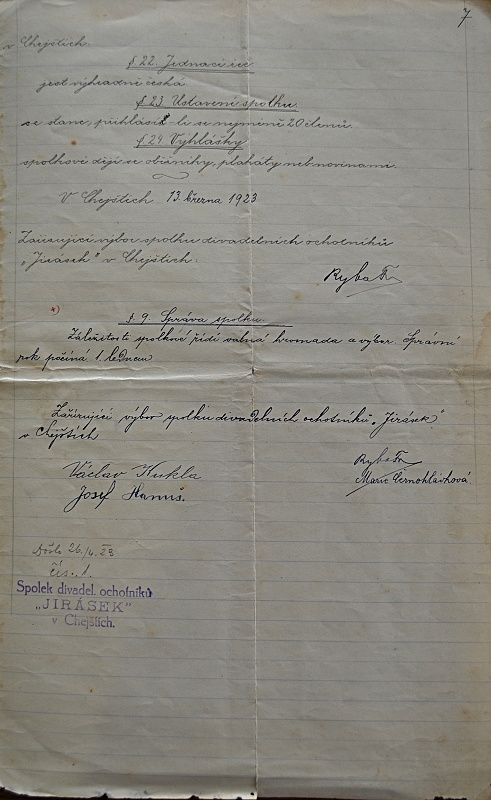 7
v Chejštích.
§ 22. Jednací řeč
jest výhradně česká
§ 23. Ustavení spolku.
se stane, přihlásí-li se nejméně 20 členů.
§ 24. Vyhlášky
spolkové dějí se oběžníky, plakáty neb novinami.
V Chejštích 13. března 1923
Zařizující výbor spolku divadelních ochotníků
„Jirásek" v Chejštích:
Ryba Fr.
+)
§. 9. Správa spolku.
Záležitosti spolkové řídí valná hromada a výbor. Správní
rok počíná 1. lednem
Zařizující výbor spolku divadelních ochotníků „Jirásek"
v Chejštích
Ryba Fr.
Václav Kukla
Marie Černohlávková.
Josef Hanuš.
Došlo 26./4. 23
čís. 1.
Spolek divadel. ochotníků
„JIRÁSEK"
v Chejštích.